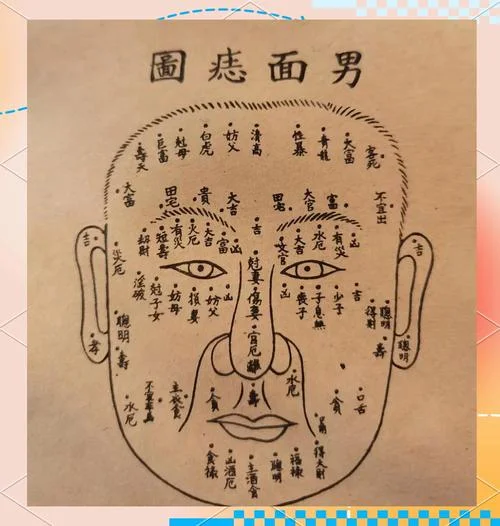 男面痣圖
客死
大富
青龍
性暴
清高
妨父
白虎
尅母
巨富
壽夭
不宜出
富
大官
田宅
吉
大吉
貴
田宅
大富
凶
有災
水厄
大吉
文官
凶
富
大吉
火厄
有災
短壽
劫財
吉
吉
災厄
尅妻
傷妻
官厄
吉
得財
少子
子息無
喪子
凶
凶
妨父
妨母
尅子女
淫破
聰明
聰明
壽
聰明
壽
孝
水厄
壽
口舌
貪
水厄
貪
主衣食
水厄
得大財
福祿
聰明
主酒食
凶酒厄
食祿